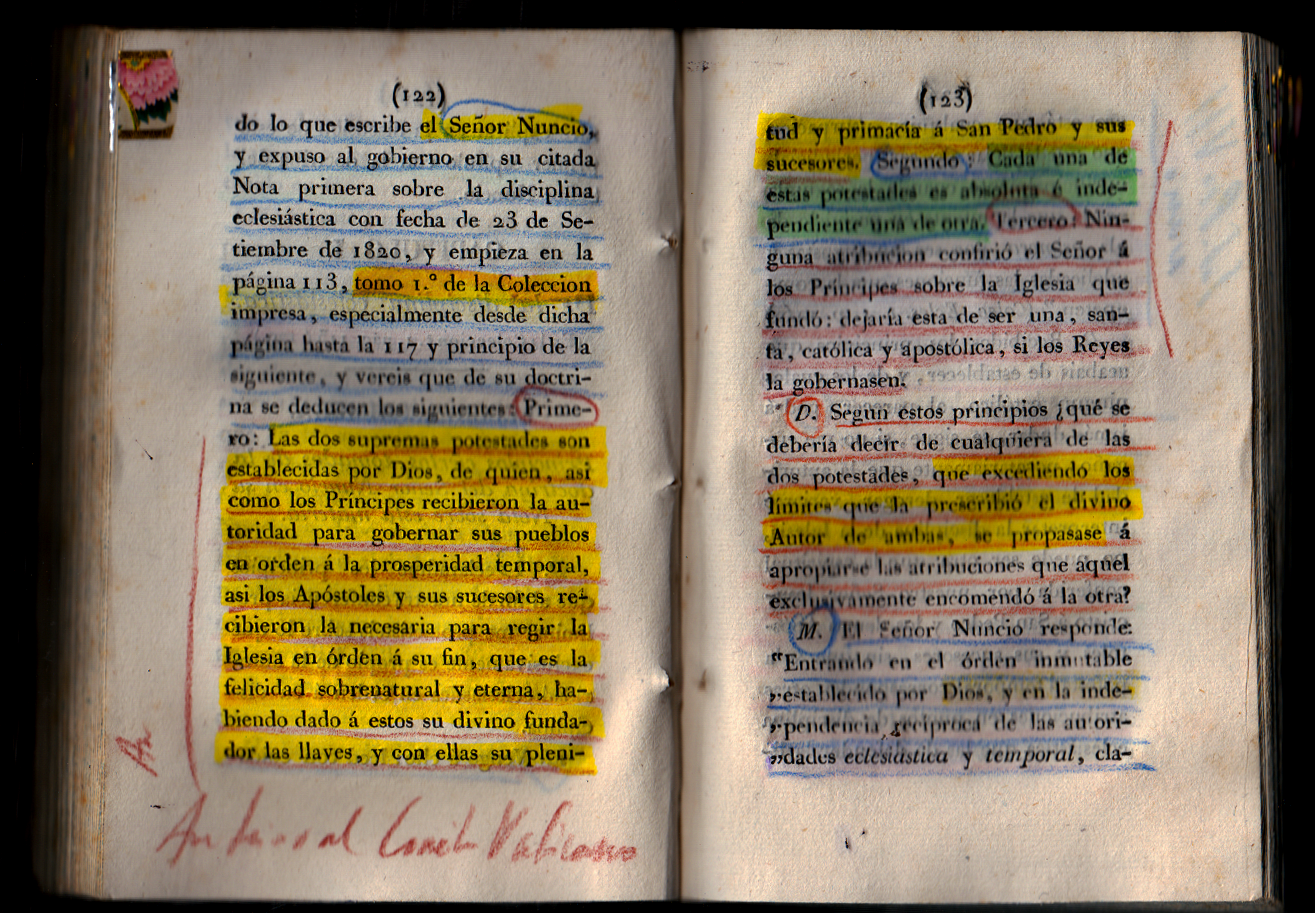 (122)
do lo que escribe el Señor Nuncio,
y expuso al gobierno en su citada
Nota primera sobre la disciplina
eclesiástica con fecha de 23 de Se-
tiembre de 1820, y empieza en la
página 113, tomo 1.º de la Coleccion
impresa, especialmente desde dicha
página hasta la 117 y principio de la
siguiente, y vereis que de su doctri-
na se deducen los siguientes: Prime-
ro: Las dos supremas potestades son
establecidas por Dios, de quien, asi
como los Príncipes recibieron la au-
toridad para gobernar sus pueblos
en orden á la prosperidad temporal,
asi los Apóstoles y sus sucesores re-
cibieron la necesaria para regir la
Iglesia en órden á su fin, que es la
felicidad sobrenatural y eterna, ha-
biendo dado á estos su divino funda-
dor las llaves, y con ellas su pleni-
al Vaticano
(123)
tud y primacía á San Pedro y sus
sucesores. Segundo: Cada una de
estas potestades es absoluta é inde-
pendiente una de otra. Tercero: Nin-
guna atribucion confirió el Señor á
los Príncipes sobre la Iglesia que
fundó: dejaría esta de ser una, san-
ta, católica y apostólica, si los Reyes
la gobernasen.
D. Segun estos principios ¿qué se
debería decir de cualquiera de las
dos potestades, que excediendo los
límites que la prescribió el divino
Autor de ambas, se propasase á
apropiarse las atribuciones que aquel
exclusivamente encomendó á la otra?
M. El Señor Nuncio responde:
"Entrando en el órden inmutable
„establecido por Dios, y en la inde-
„pendencia recíproca de las autori-
„dades eclesiástica y temporal, cla-